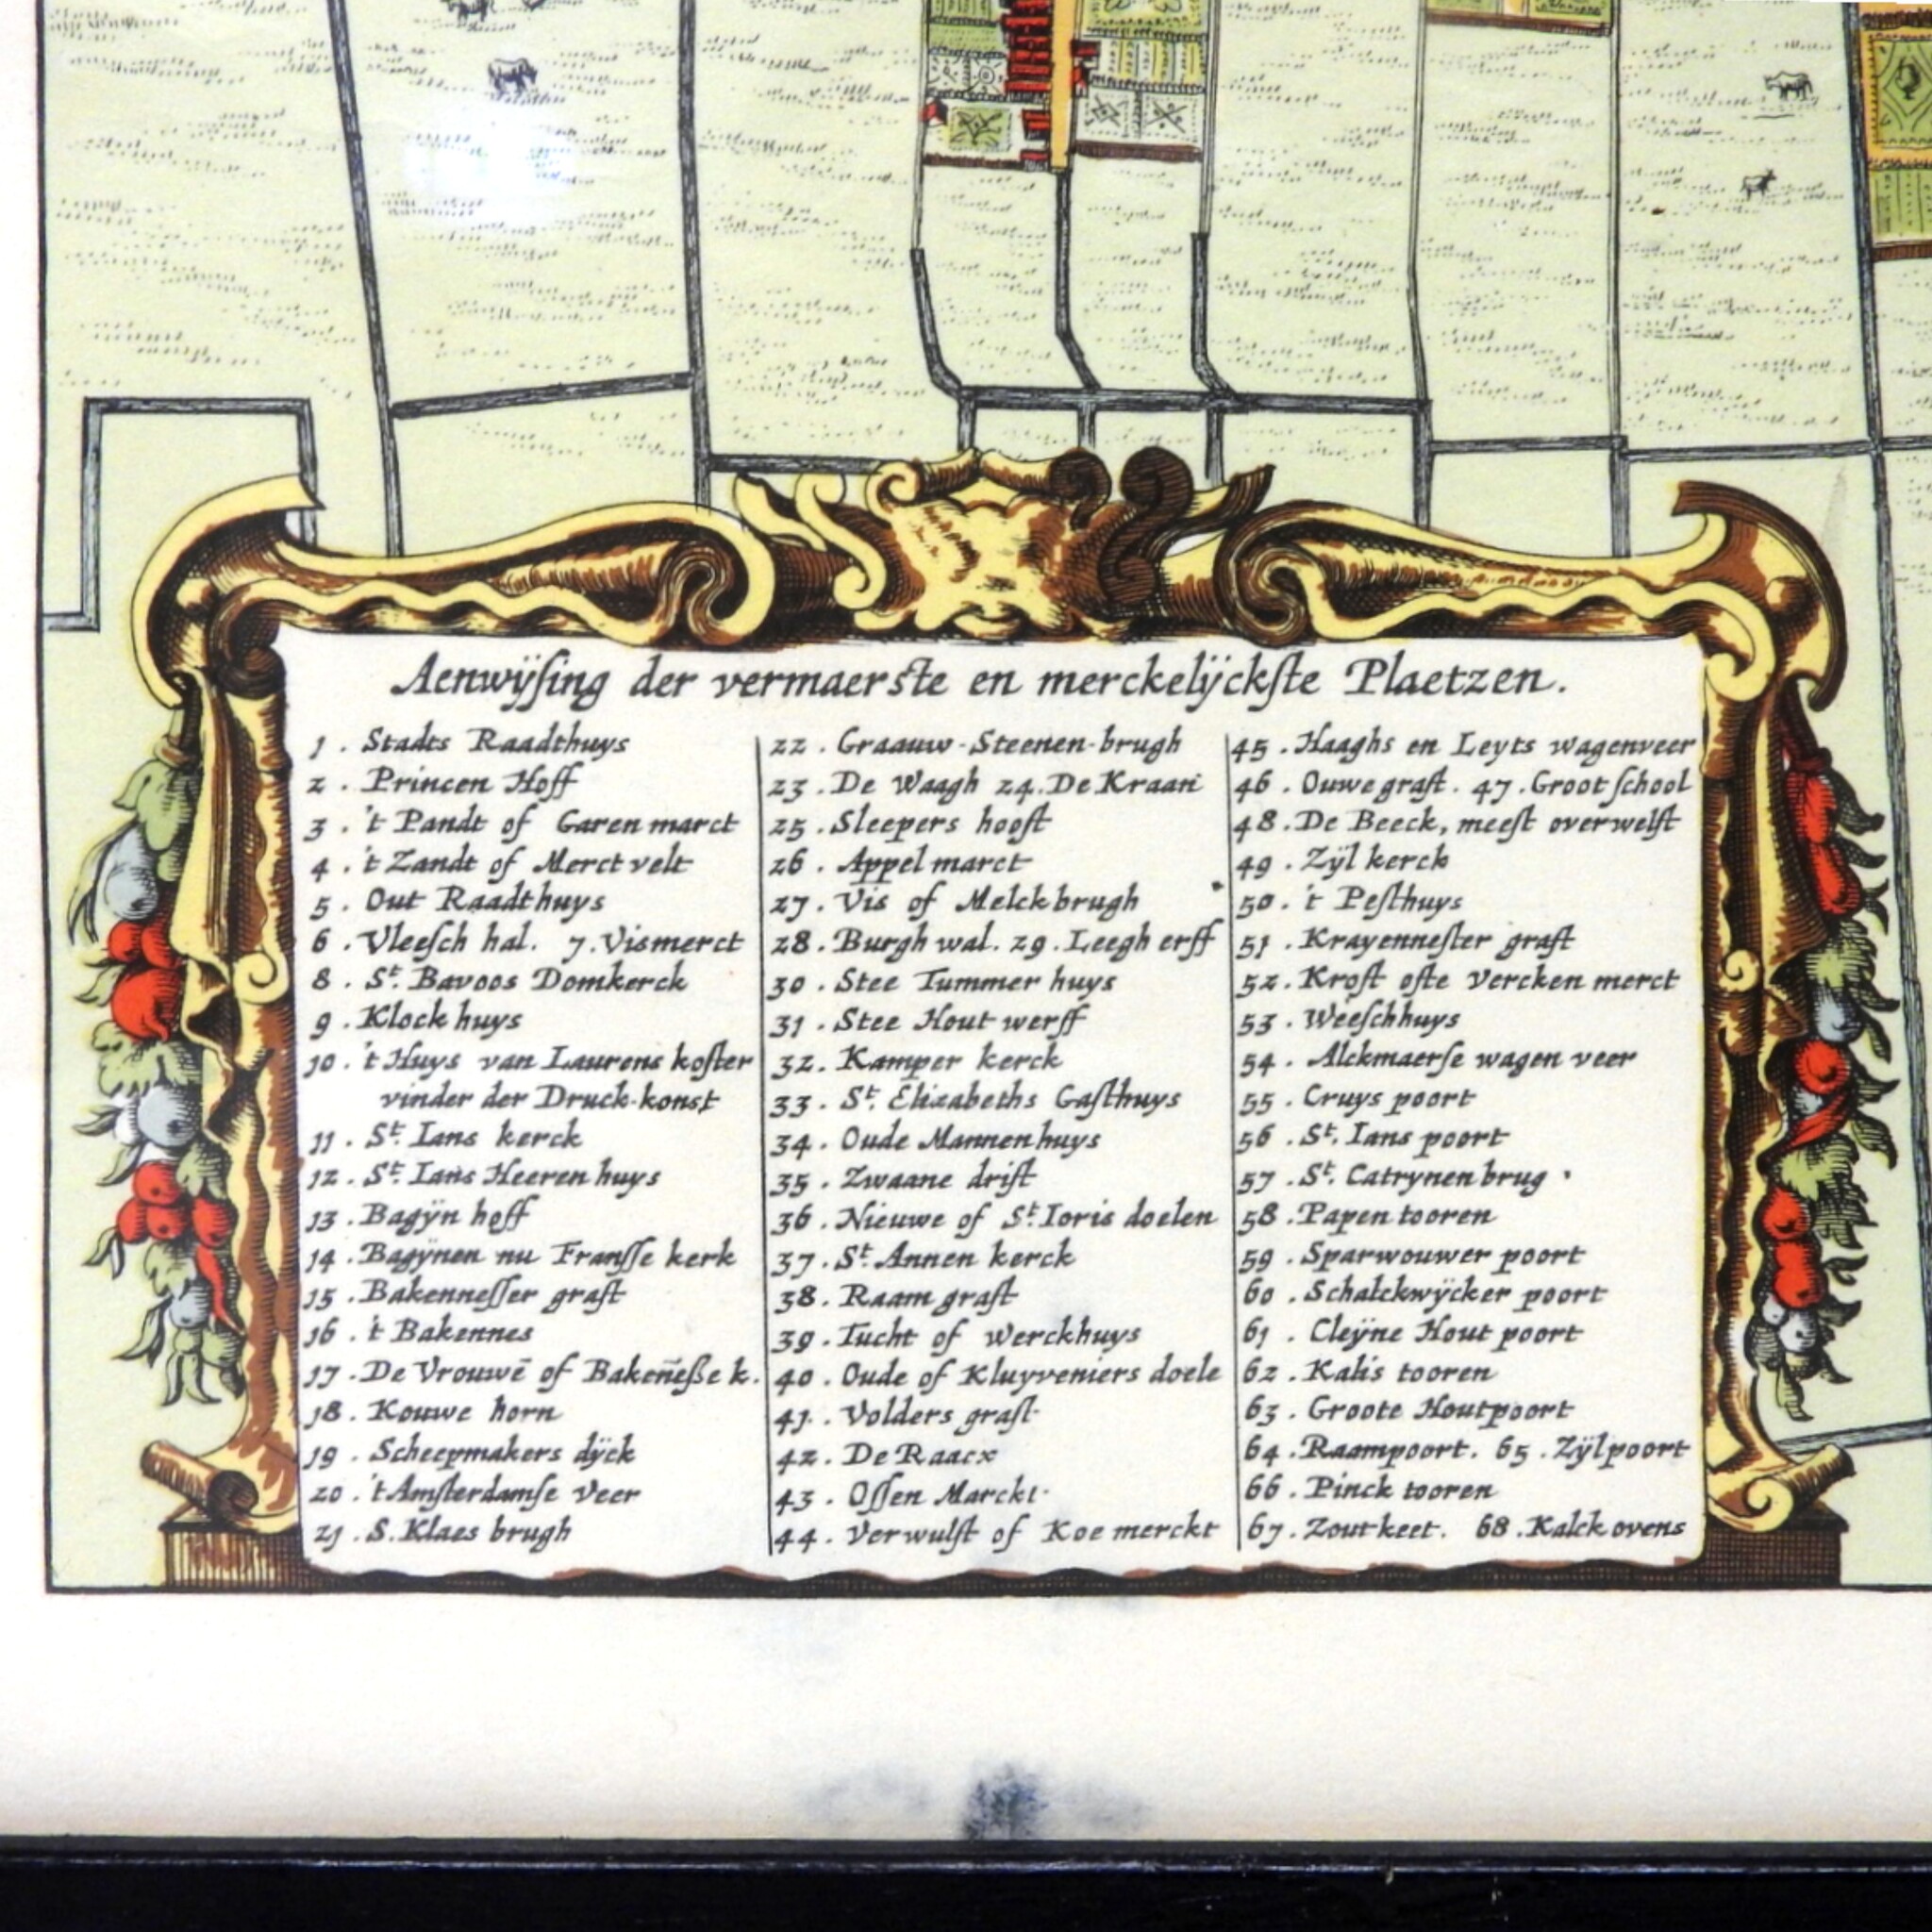 Aenwÿsing der vermaerste en merckelÿckste Plaetzen.
1 . Stadts Raadthuys
2 . Princen Hoff
3 . 't Pandt of Garen marct
4 . 't Zandt of Merct velt
5 . Out Raadthuys
6 . Vleesch hal. 7. Vismerct
8 . St. Bavoos Domkerck
9 . Klock huys
10 . 't Huys van Laurens koster
vinder der Druck-konst
11 . St. Ians kerck
12 . St. Ians Heeren huys
13 . Bagÿn hoff
14 . Bagÿnen nu Fransse kerk
15 . Bakennesser graft
16 . 't Bakennes
17 . De Vrouwē of Bakeñeße k.
18 . Kouwe horn
19 . Scheepmakers dÿck
20 . 't Amsterdamse veer
21 . S. Klaes brugh
22 . Graauw-Steenen-brugh
23 . De Waagh 24. De Kraan
25 . Sleepers hooft
26 . Appel marct
27 . Vis of Melckbrugh
28 . Burgh wal. 29. Leegh erff
30 . Stee Tummer huys
31 . Stee Hout werff
32 . Kamper kerck
33 . St. Elizabeths Gasthuys
34 . Oude Mannen huys
35 . Zwaane drift
36 . Nieuwe of St. Ioris doelen
37 . St. Annen kerck
38 . Raam graft
39 . Tucht of werckhuys
40 . Oude of Kluyveniers doele
41 . Volders graft
42 . De Raacx
43 . Ossen Marckt
44 . Verwulft of Koe merckt
45 . Haaghs en Leyts wagenveer
46 . Ouwe graft. 47. Groot school
48 . De Beeck, meest overwelft
49 . Zÿl kerck
50 . 't Pesthuys
51 . Krayennester graft
52 . Kroft ofte vercken merct
53 . Weeschhuys
54 . Alckmaerse wagen veer
55 . Cruys poort
56 . St. Ians poort
57 . St. Catrynen brug
58 . Papen tooren
59 . Sparwouwer poort
60 . Schalckwÿcker poort
61 . Cleÿne Hout poort
62 . Kalis tooren
63 . Groote Houtpoort
64 . Raampoort. 65. Zÿlpoort
66 . Pinck tooren
67 . Zoutkeet. 68. Kalck ovens